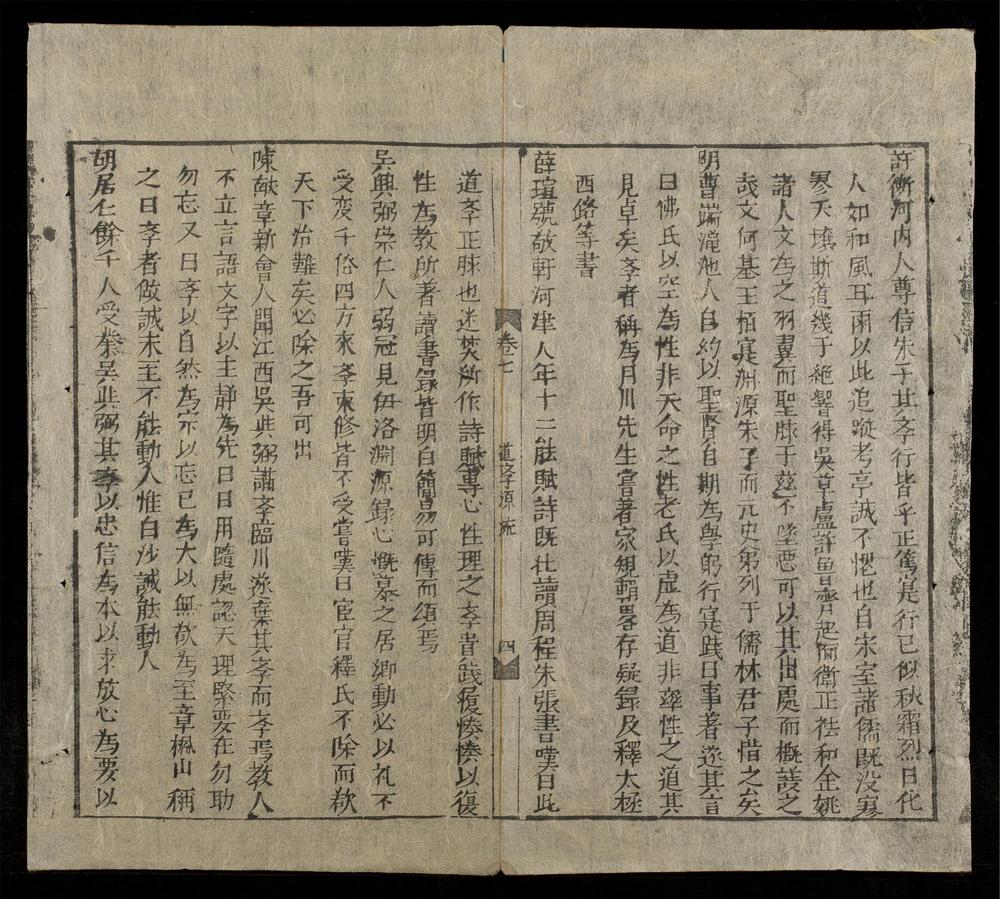 許衡河内人尊信朱子其斈行皆乎正篤寔行已似秋霜烈日化
人如和風耳雨以此追蹤考亭誠不愧也自宋室諸儒既没寒
寥天壤斯道幾于絶響得吳草盧許魯齊起而衛正祛和金姚
諸人文為之羽翼而聖脉于兹不墜惡可以其出處而概議之
㢤文何基王栢寔渊源朱子而元史弟列于儒林君子惜之矣
明曹端渑池人自約以聖賢自期為學躬行寔践日事著遂其言
曰佛氏以空為性非天命之性老氏以虚為道非率性之道其
見卓矣斈者稱為月川先生嘗著家規輯畧存疑録及釋太極
西銘等書
薛瑄號敬軒河津人年十二能賦詩既仕讀周程朱張書嘆曰此
卷七
道斈源流
四
道斈正脉也迷焚所作詩賦專心性理之斈書践履惓惓以復
性為教所著讀書录皆明白簡易可傳而頌焉
吳與弼崇仁人弱冠見伊洛渊源録心慨慕之居鄉動必以礼不
受变千俗四方來斈束修皆不受嘗嘆曰宦官釋氏不除而欲
天下治難矣必除之吾可出
陳献章新會人聞江西吳與弼講斈臨川遂棄其斈而斈焉教人
不立言語文字以主静為先日日用隨處認天理緊要在勿助
勿忘又日斈以自然為宗以忘已為大以無欲為至章楓山稱
之曰斈者做誠未至不能動人惟白沙誠能動人
胡居仁餘千人受業吳與弼其斈以忠信為本以求放心為要以